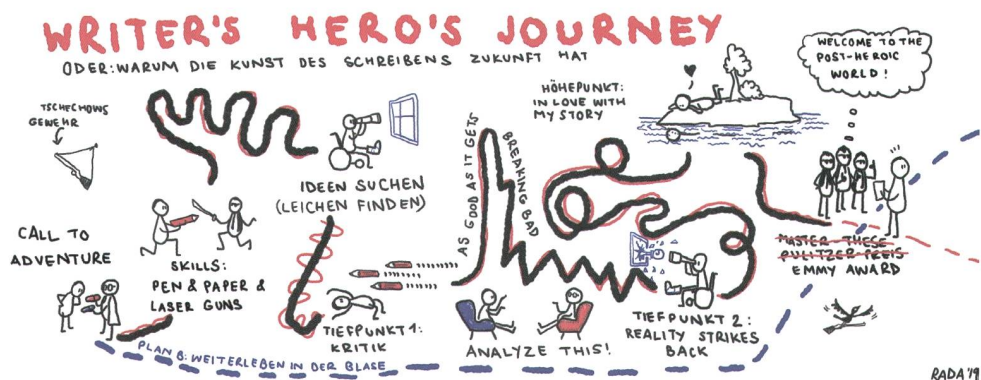 WRITER'S HERO'S JOURNEY
ODER: WARUM DIE KUNST DES SCHREIBENS ZUKUNFT HAT
TSCHECHOWS
GEWEHR
CALL TO
ADVENTURE
SKILLS:
PEN & PAPER &
LASER GUNS
IDEEN SUCHEN
(LEICHEN FINDEN)
TIEFPUNKT 1:
KRITIK
AS GOOD AS IT GETS
BREAKING BAD
ANALYZE THIS!
HÖHEPUNKT:
IN LOVE WITH
MY STORY
TIEFPUNKT 2:
REALITY STRIKES
BACK
WELCOME TO THE
POST-HEROIC
WORLD!
MASTER-THESE
PULITZER-PREIS
EMMY AWARD
PLAN B: WEITERLEBEN IN DER BLASE
RADA'19